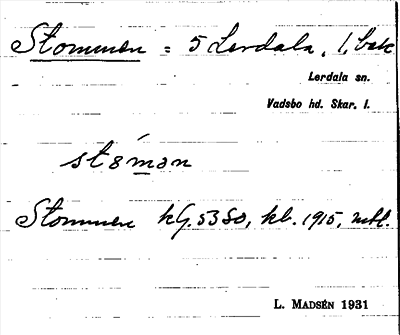 Stommen = 5 Lerdala, 1, bak
Lerdala sn.
Vadsbo hd. Skar. l.
stómən
Stommen kG. 53 SO, kl. 1915, mtl.
L. MADSÉN 1931